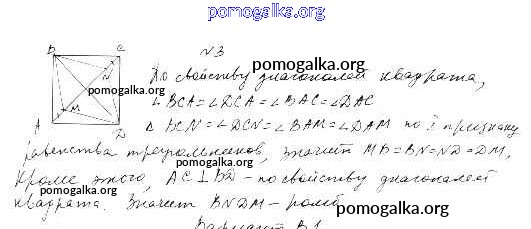 pomogalka.org
N3
B C
pomogalka.org
N
По свойству диагоналей квадрата,
pomogalka.org
M
∠BCA = ∠DCA = ∠BAC = ∠DAC
A D
△ BCN = ∠DCN = ∠BAM = ∠DAM по I признаку
pomogalka.org
равенства треугольников, значит MB = BN = ND = DM,
pomogalka.org
кроме этого, AC ⊥ BD - по свойству диагоналей
pomogalka.org
квадрата. Значит BNDM - ромб.
pomogalka.org
Вариант В1